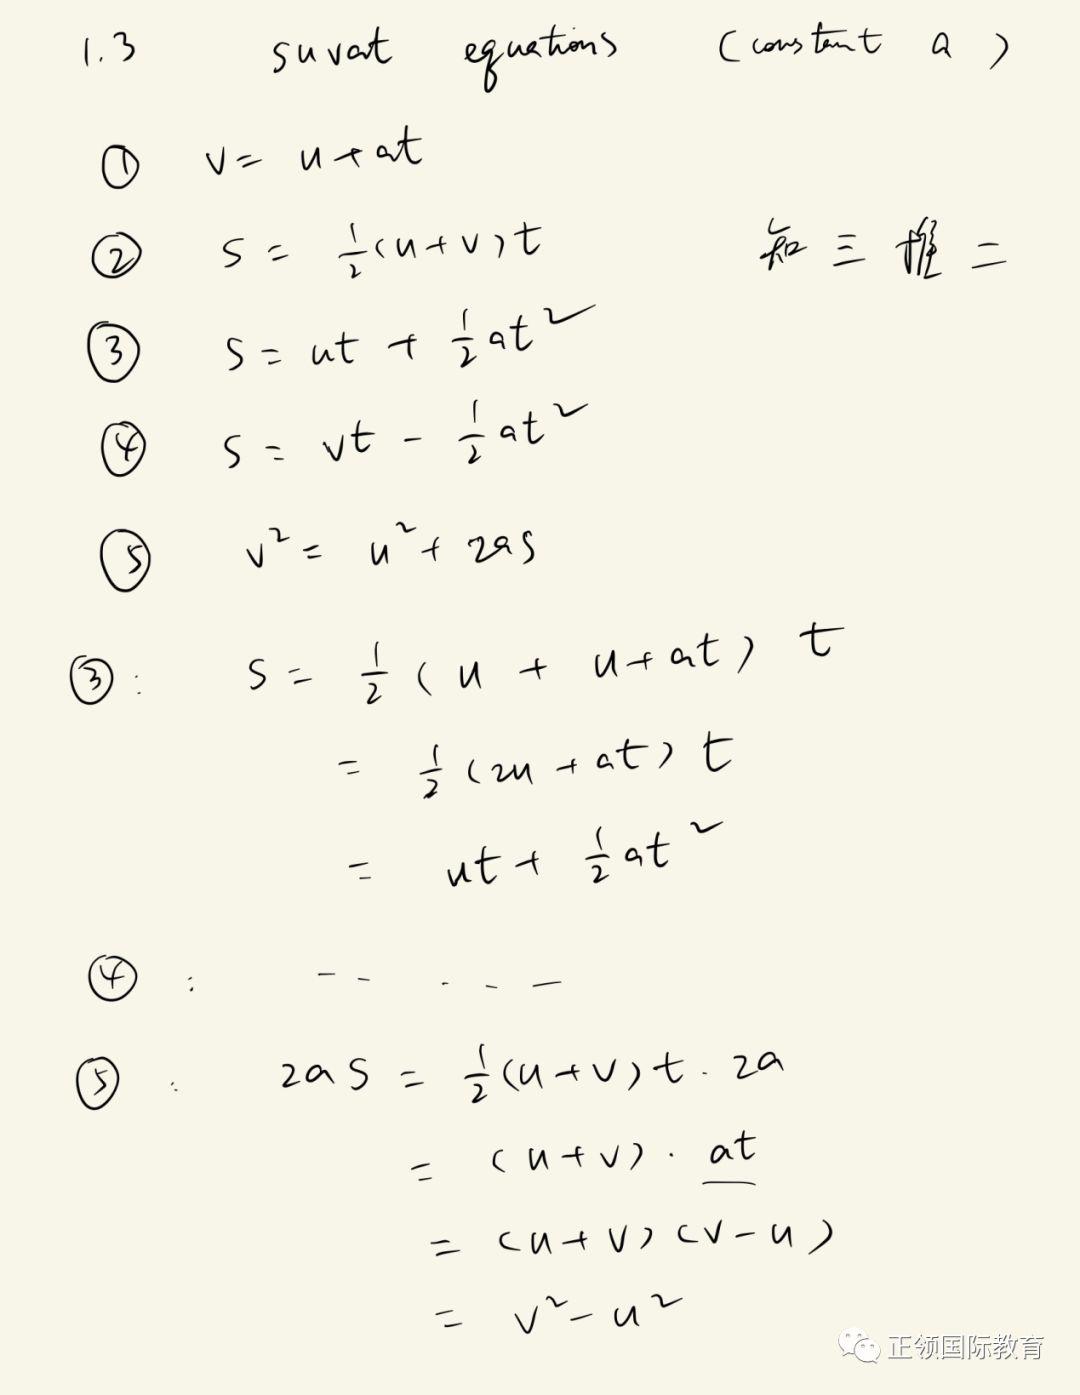 1.3 suvat equations (constant a)
① v = u + at
② s = ½(u+v)t
知三推二
③ s = ut + ½at²
④ s = vt - ½at²
⑤ v² = u² + 2as
③: s = ½(u + u+at)t
= ½(2u + at)t
= ut + ½at²
④: -- · - —
⑤: 2as = ½(u+v)t · 2a
= (u+v) · at
= (u+v)(v-u)
= v² - u²
正领国际教育